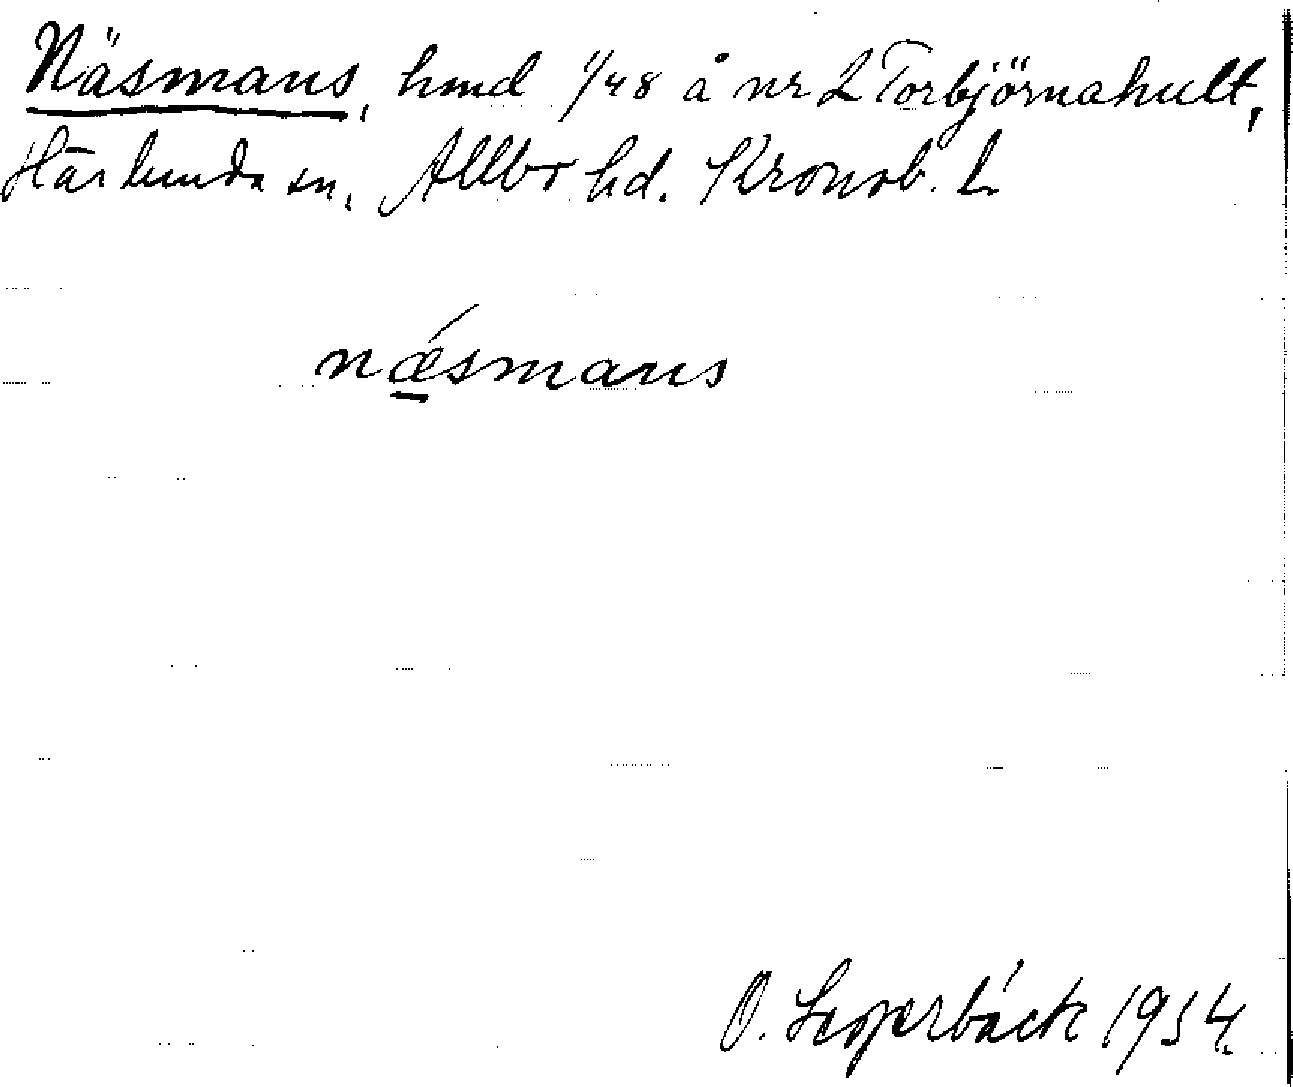 Näsmans, hmd 1/48 å nr 2 Torbjörnahult,
Härlunda sn, Allbo hd. Kronob. L
næ´smans
O. Loperbäck 1954.